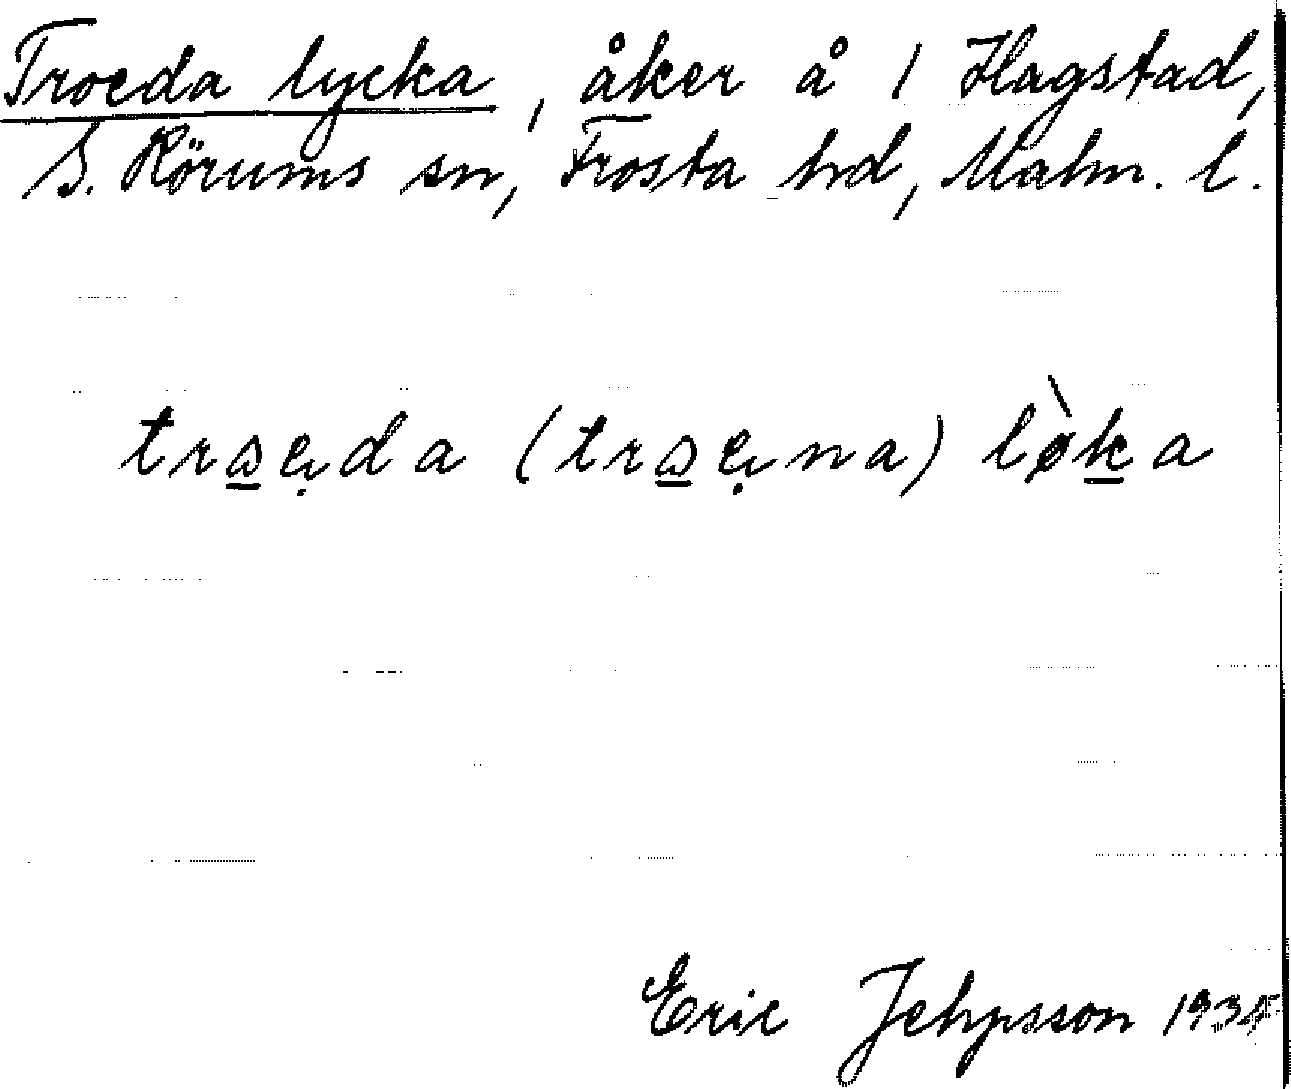 Troeda lycka, åker å 1 Hagstad,
S. Rörums sn, Frosta hd, Malm. l.
trα̲ẹda (trα̲ẹna) lø̀k̲a
Eric Jehpsson 1934